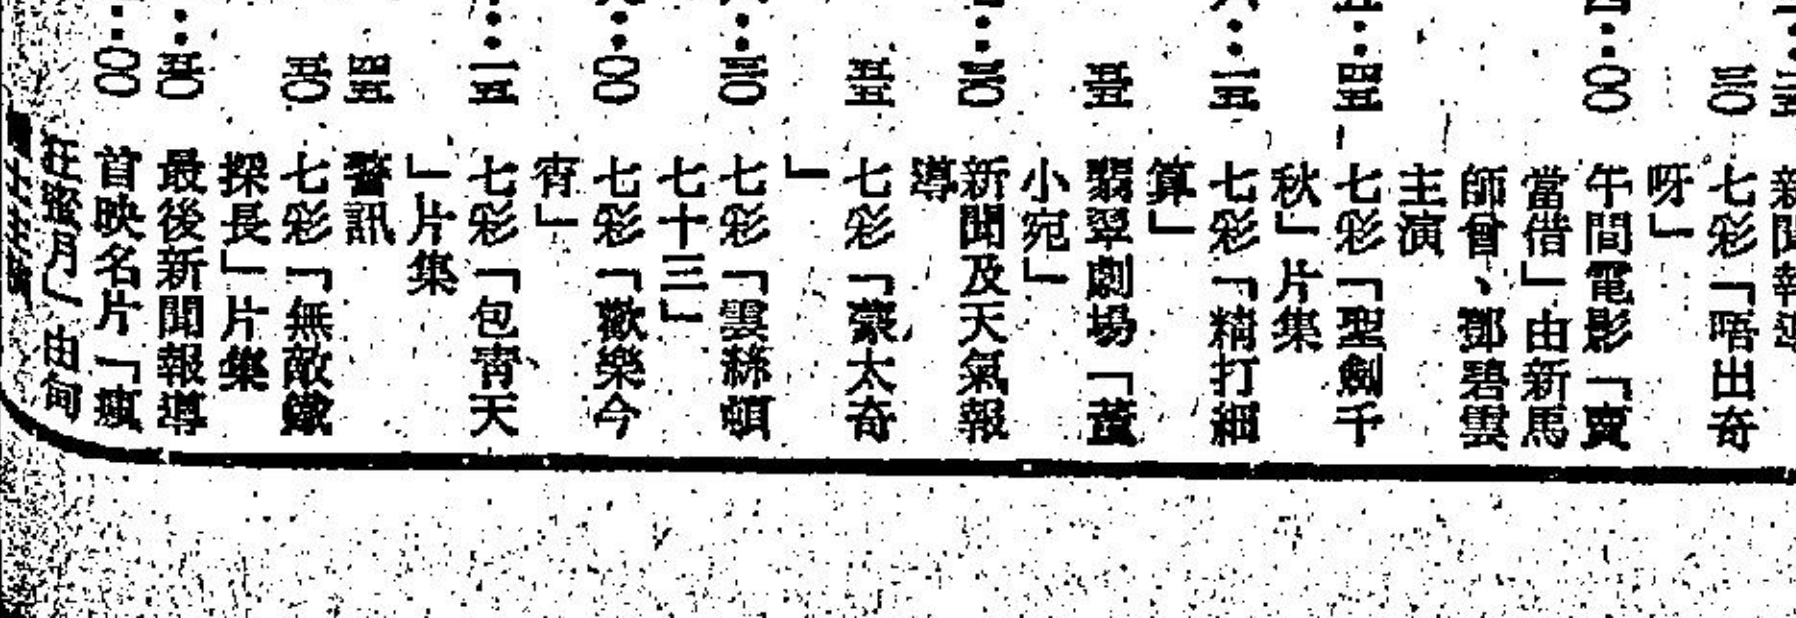 新聞報導
三〇 七彩「唔出奇
呀」
四：〇〇 午間電影「賣
當借」由新馬
師曾、鄧碧雲
主演
五：四五 七彩「聖劍千
秋」片集
六：一五 七彩「精打細
算」
五五 翡翠劇場「董
小宛」
三〇 新聞及天氣報
導
五五 七彩「蒙太奇
」
三〇 七彩「雲絲頓
七十三」
〇〇 七彩「歡樂今
宵」
一五 七彩「包青天
」片集
四五 警訊
五〇 七彩「無敵鐵
探長」片集
五〇 最後新聞報導
〇〇 首映名片「瘋
狂蜜月」由甸